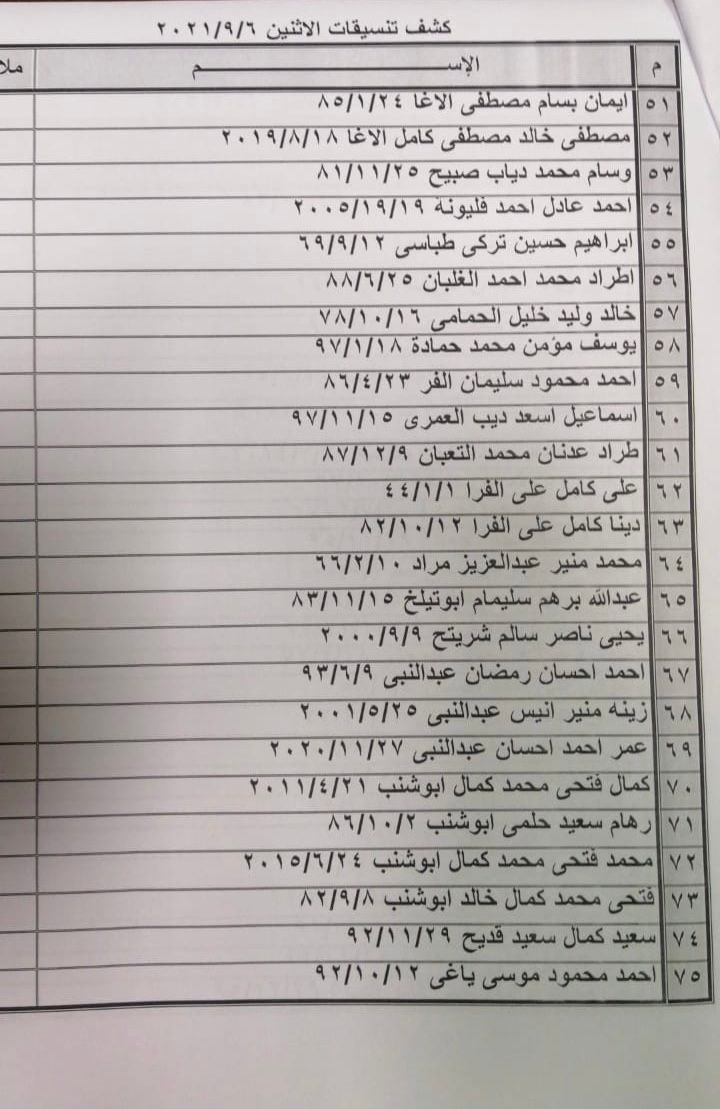 كشف تنسيقات الاثنين ٢٠٢١/٩/٦
م الإســـــــــم ملا
٥١ ايمان بسام مصطفى الاغا ٨٥/١/٢٤
٥٢ مصطفى خالد مصطفى كامل الاغا ٢٠١٩/٨/١٨
٥٣ وسام محمد دياب صبيح ٨١/١١/٢٥
٥٤ احمد عادل احمد فليونة ٢٠٠٥/١٩/١٩
٥٥ ابراهيم حسين تركى طباسى ٦٩/٩/١٢
٥٦ اطراد محمد احمد الغلبان ٨٨/٦/٢٥
٥٧ خالد وليد خليل الحمامى ٧٨/١٠/١٦
٥٨ يوسف مؤمن محمد حمادة ٩٧/١/١٨
٥٩ احمد محمود سليمان الفر ٨٦/٤/٢٣
٦٠ اسماعيل اسعد ديب العمرى ٩٧/١١/١٥
٦١ طراد عدنان محمد التعبان ٨٧/١٢/٩
٦٢ على كامل على الفرا ٤٤/١/١
٦٣ دينا كامل على الفرا ٨٢/١٠/١٢
٦٤ محمد منير عبدالعزيز مراد ٦٦/٢/١٠
٦٥ عبدالله برهم سليمام ابوتيلخ ٨٣/١١/١٥
٦٦ يحيى ناصر سالم شريتح ٢٠٠٠/٩/٩
٦٧ احمد احسان رمضان عبدالنبى ٩٣/٦/٩
٦٨ زينه منير انيس عبدالنبى ٢٠٠١/٥/٢٥
٦٩ عمر احمد احسان عبدالنبى ٢٠٢٠/١١/٢٧
٧٠ كمال فتحى محمد كمال ابوشنب ٢٠١١/٤/٢١
٧١ رهام سعيد حلمى ابوشنب ٨٦/١٠/٢
٧٢ محمد فتحى محمد كمال ابوشنب ٢٠١٥/٦/٢٤
٧٣ فتحى محمد كمال خالد ابوشنب ٨٢/٩/٨
٧٤ سعيد كمال سعيد قديح ٩٢/١١/٢٩
٧٥ احمد محمود موسى ياغى ٩٢/١٠/١٢